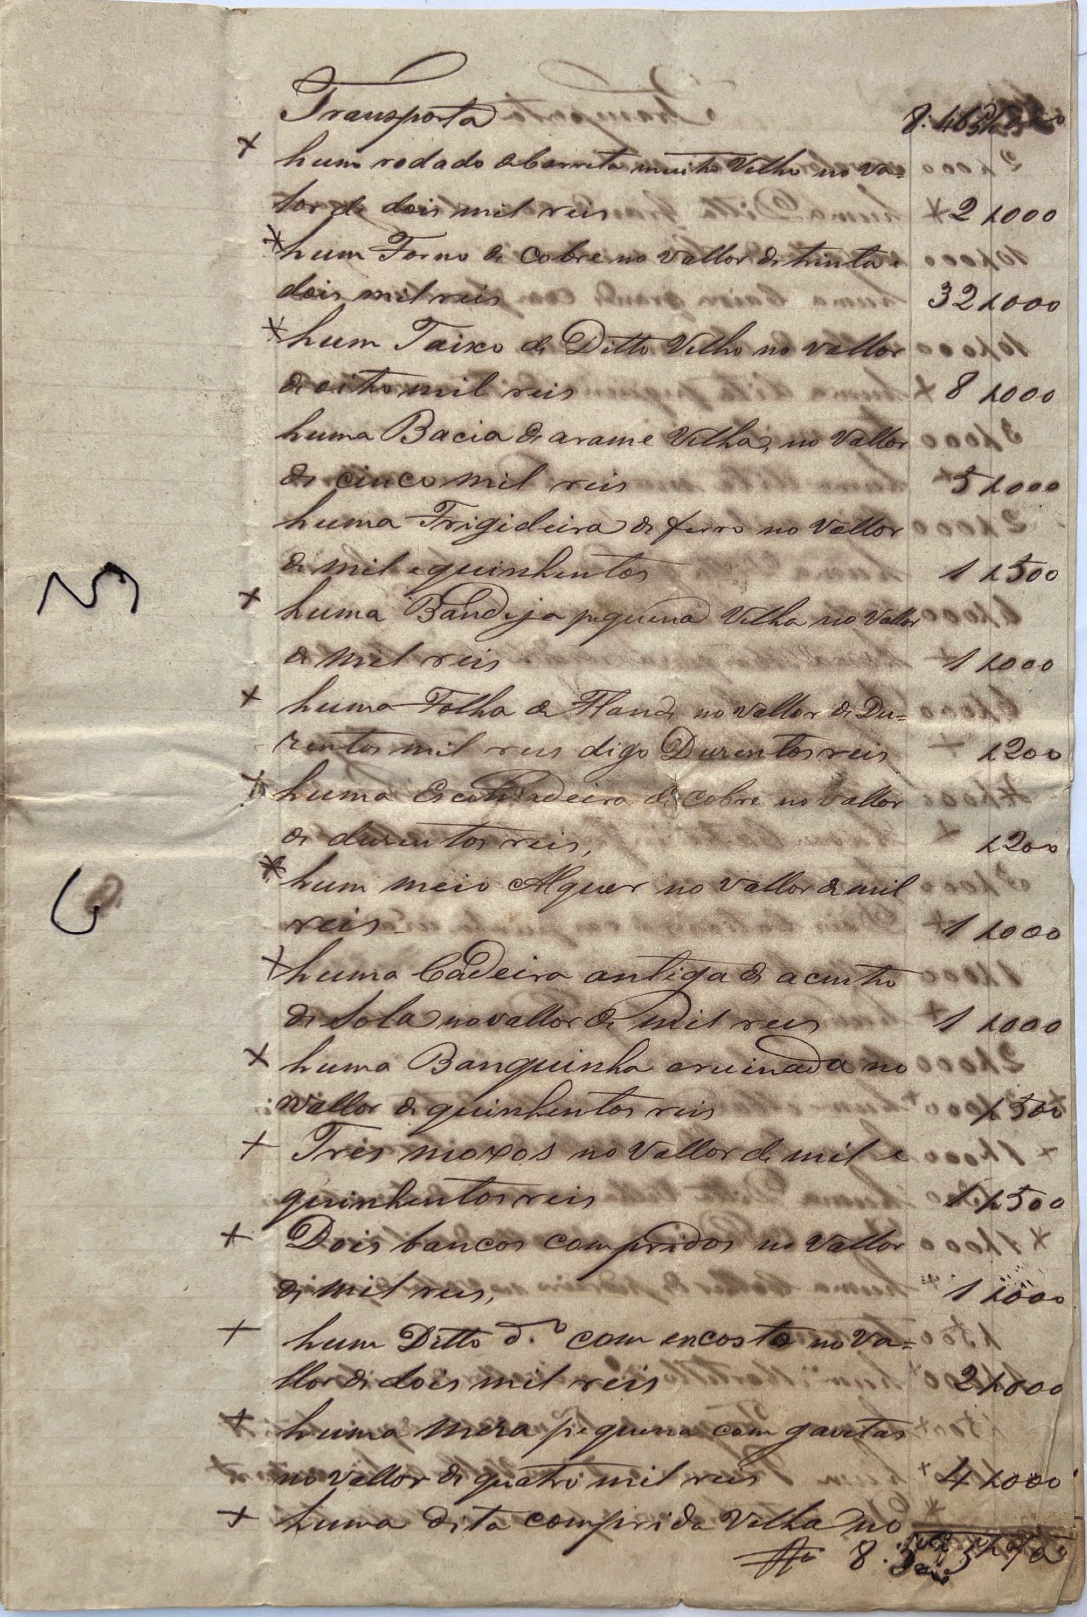 Transporta
hum rodado de carreta muito Velho no va=
lor de dois mil reis 2 $000
hum Forno de Cobre no vallor de trinta e
dois mil reis 32 $000
hum Taixo de Ditto Velho no vallor
de oitho mil reis 8 $000
huma Bacia de arame Velha, no Vallor
de cinco mil reis 5 $000
huma Frigideira de ferro no Vallor
de mil e quinhentos 1 $500
huma Bandeja pequena Velha no Vallor
de mil reis 1 $000
huma Folha de Fland. no vallor de Du=
zentos mil reis digo Duzentos reis $200
huma Escumadeira de cobre no Vallor
de duzentos reis, $200
hum meio Alquer no vallor de mil
reis. 1 $000
huma Cadeira antiga de acento
de Sola no vallor de mil reis 1 $000
huma Banquinha aruinada no
Vallor de quinhentos reis $500
Tres moxos no Vallor de mil e
quinhentos reis 1 $500
Dois bancos compridos no Vallor
de mil reis, 1 $000
hum Ditto d.º com encosto no Va=
llor de dois mil reis 2 $000
huma meza pequena com gavetas
no Vallor de quatro mil reis 4 $000
huma dita comprida Velha no